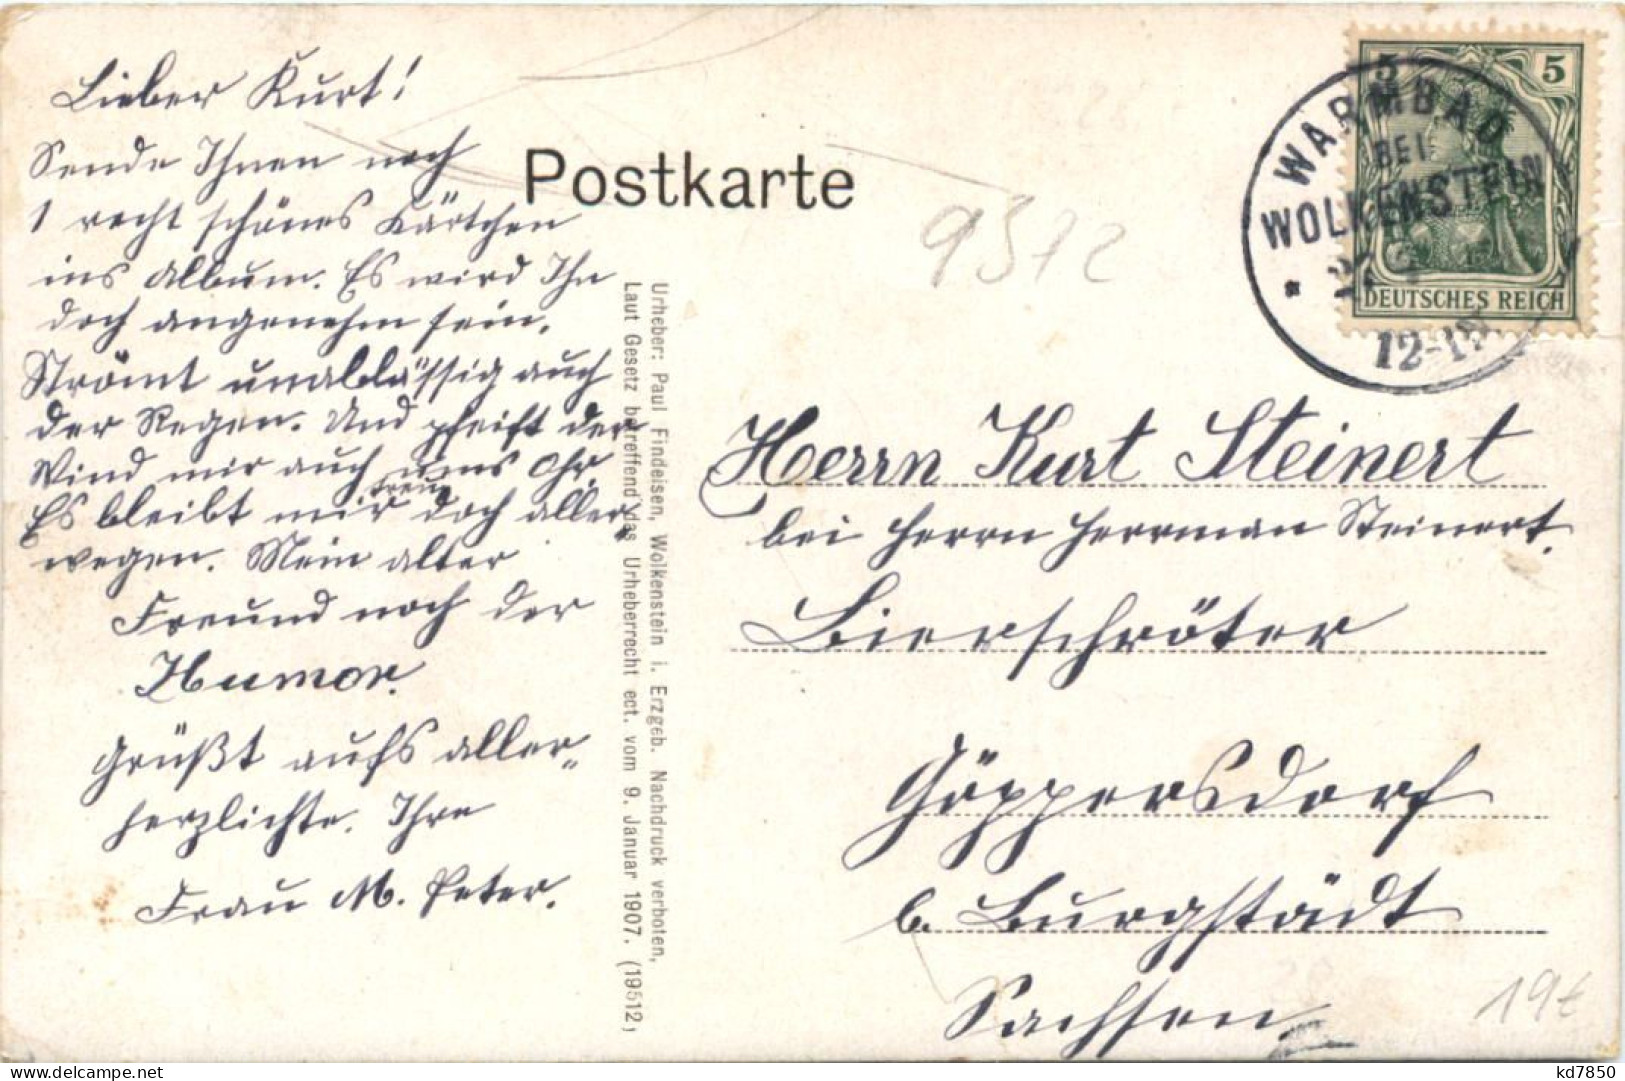 Lieber Kurt!
Sende Ihnen noch
1 recht schönes Kärtchen
ins Album. Es wird Ihn
doch angenehm sein.
Strömt unablässig auch
der Regen. Und pfeift der
Wind mir auch ums Ohr,
Es bleibt mir treu doch aller-
wegen. Mein alter
Freund noch der
Humor.
Grüßt aufs aller-
herzlichste. Ihre
Frau M. Peter.
Postkarte
9312
Urheber: Paul Findeisen, Wolkenstein i. Erzgeb. Nachdruck verboten,
Laut Gesetz betreffend das Urheberrecht ect. vom 9. Januar 1907. (19512)
5 5
DEUTSCHES REICH
WARMBAD
BEI
WOLKENSTEIN
12-1
Herrn Kurt Steinert
bei Herrn Herrman Steinert.
Bierschröter
Göppersdorf
b. Burgstädt
Sachsen
19€
kd7850